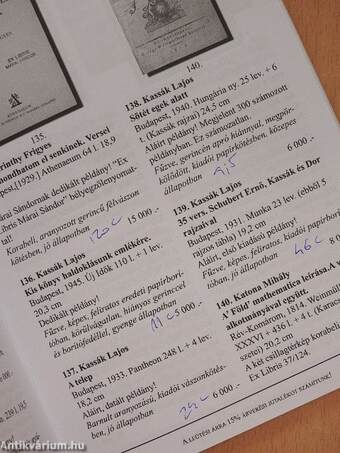 EX LIBRIS
MÁRAI SÁNDOR
135.
140.
rinthy Frigyes
mondhatom el senkinek. Versel
pest,[1929.] Athenaeum 64 l. 18,9
árai Sándornak dedikált példány! "Ex
ibris Márai Sándor" bélyegzőlenyomat-
tal!
Korabeli, aranyozott gerincű félvászon
kötésben, jó állapotban
15 000.-
136. Kassák Lajos
Kis könyv haldoklásunk emlékére.
Budapest, 1945. Új Idők 110 l. + 1 lev.
20,3 cm
Dedikált példány!
Fűzve, képes, feliratos eredeti papírborí-
tóban, körülvágatlan, hiányos gerinccel
és borítófedéllel, gyenge állapotban
5 000.-
137. Kassák Lajos
A telep
Budapest, 1933. Pantheon 248 l. + 4 lev.
18,2 cm
Aláírt, datált példány!
Barnult aranyozású, kiadói vászonkötés-
ben, jó állapotban
6 000.-
138. Kassák Lajos
Sötét egek alatt
Budapest, 1940. Hungária ny. 25 lev. + 6
t. (Kassák rajzai) 24,5 cm
Aláírt példány! Megjelent 300 számozott
példányban. Ez számozatlan.
Fűzve, gerincén apró hiánnyal, megpör-
kölődött, kiadói papírkötésben, közepes
állapotban
6 000.-
139. Kassák Lajos
35 vers. Schubert Ernő, Kassák és Dor
rajzaival
Budapest, 1931. Munka 23 lev. (ebből 5
rajzos tábla) 19,2 cm
Aláírt, első kiadású példány!
Fűzve, képes, feliratos, kiadói papírborító-
tóban, jó állapotban
8 000
140. Katona Mihály
A' Föld' mathematica leírása. A v
alkotmányával együtt.
Rév-Komárom, 1814. Weinmüll
XXXVI + 436 l. + 4 t. (Karacs
zete) 20,2 cm
A két csillagtérkép korabeli
Ex Libris 37/124.
A LEÜTÉSI ÁRRA 15% ÁRVERÉSI JUTALÉKOT SZÁMÍTUNK!
Antikvárium.hu